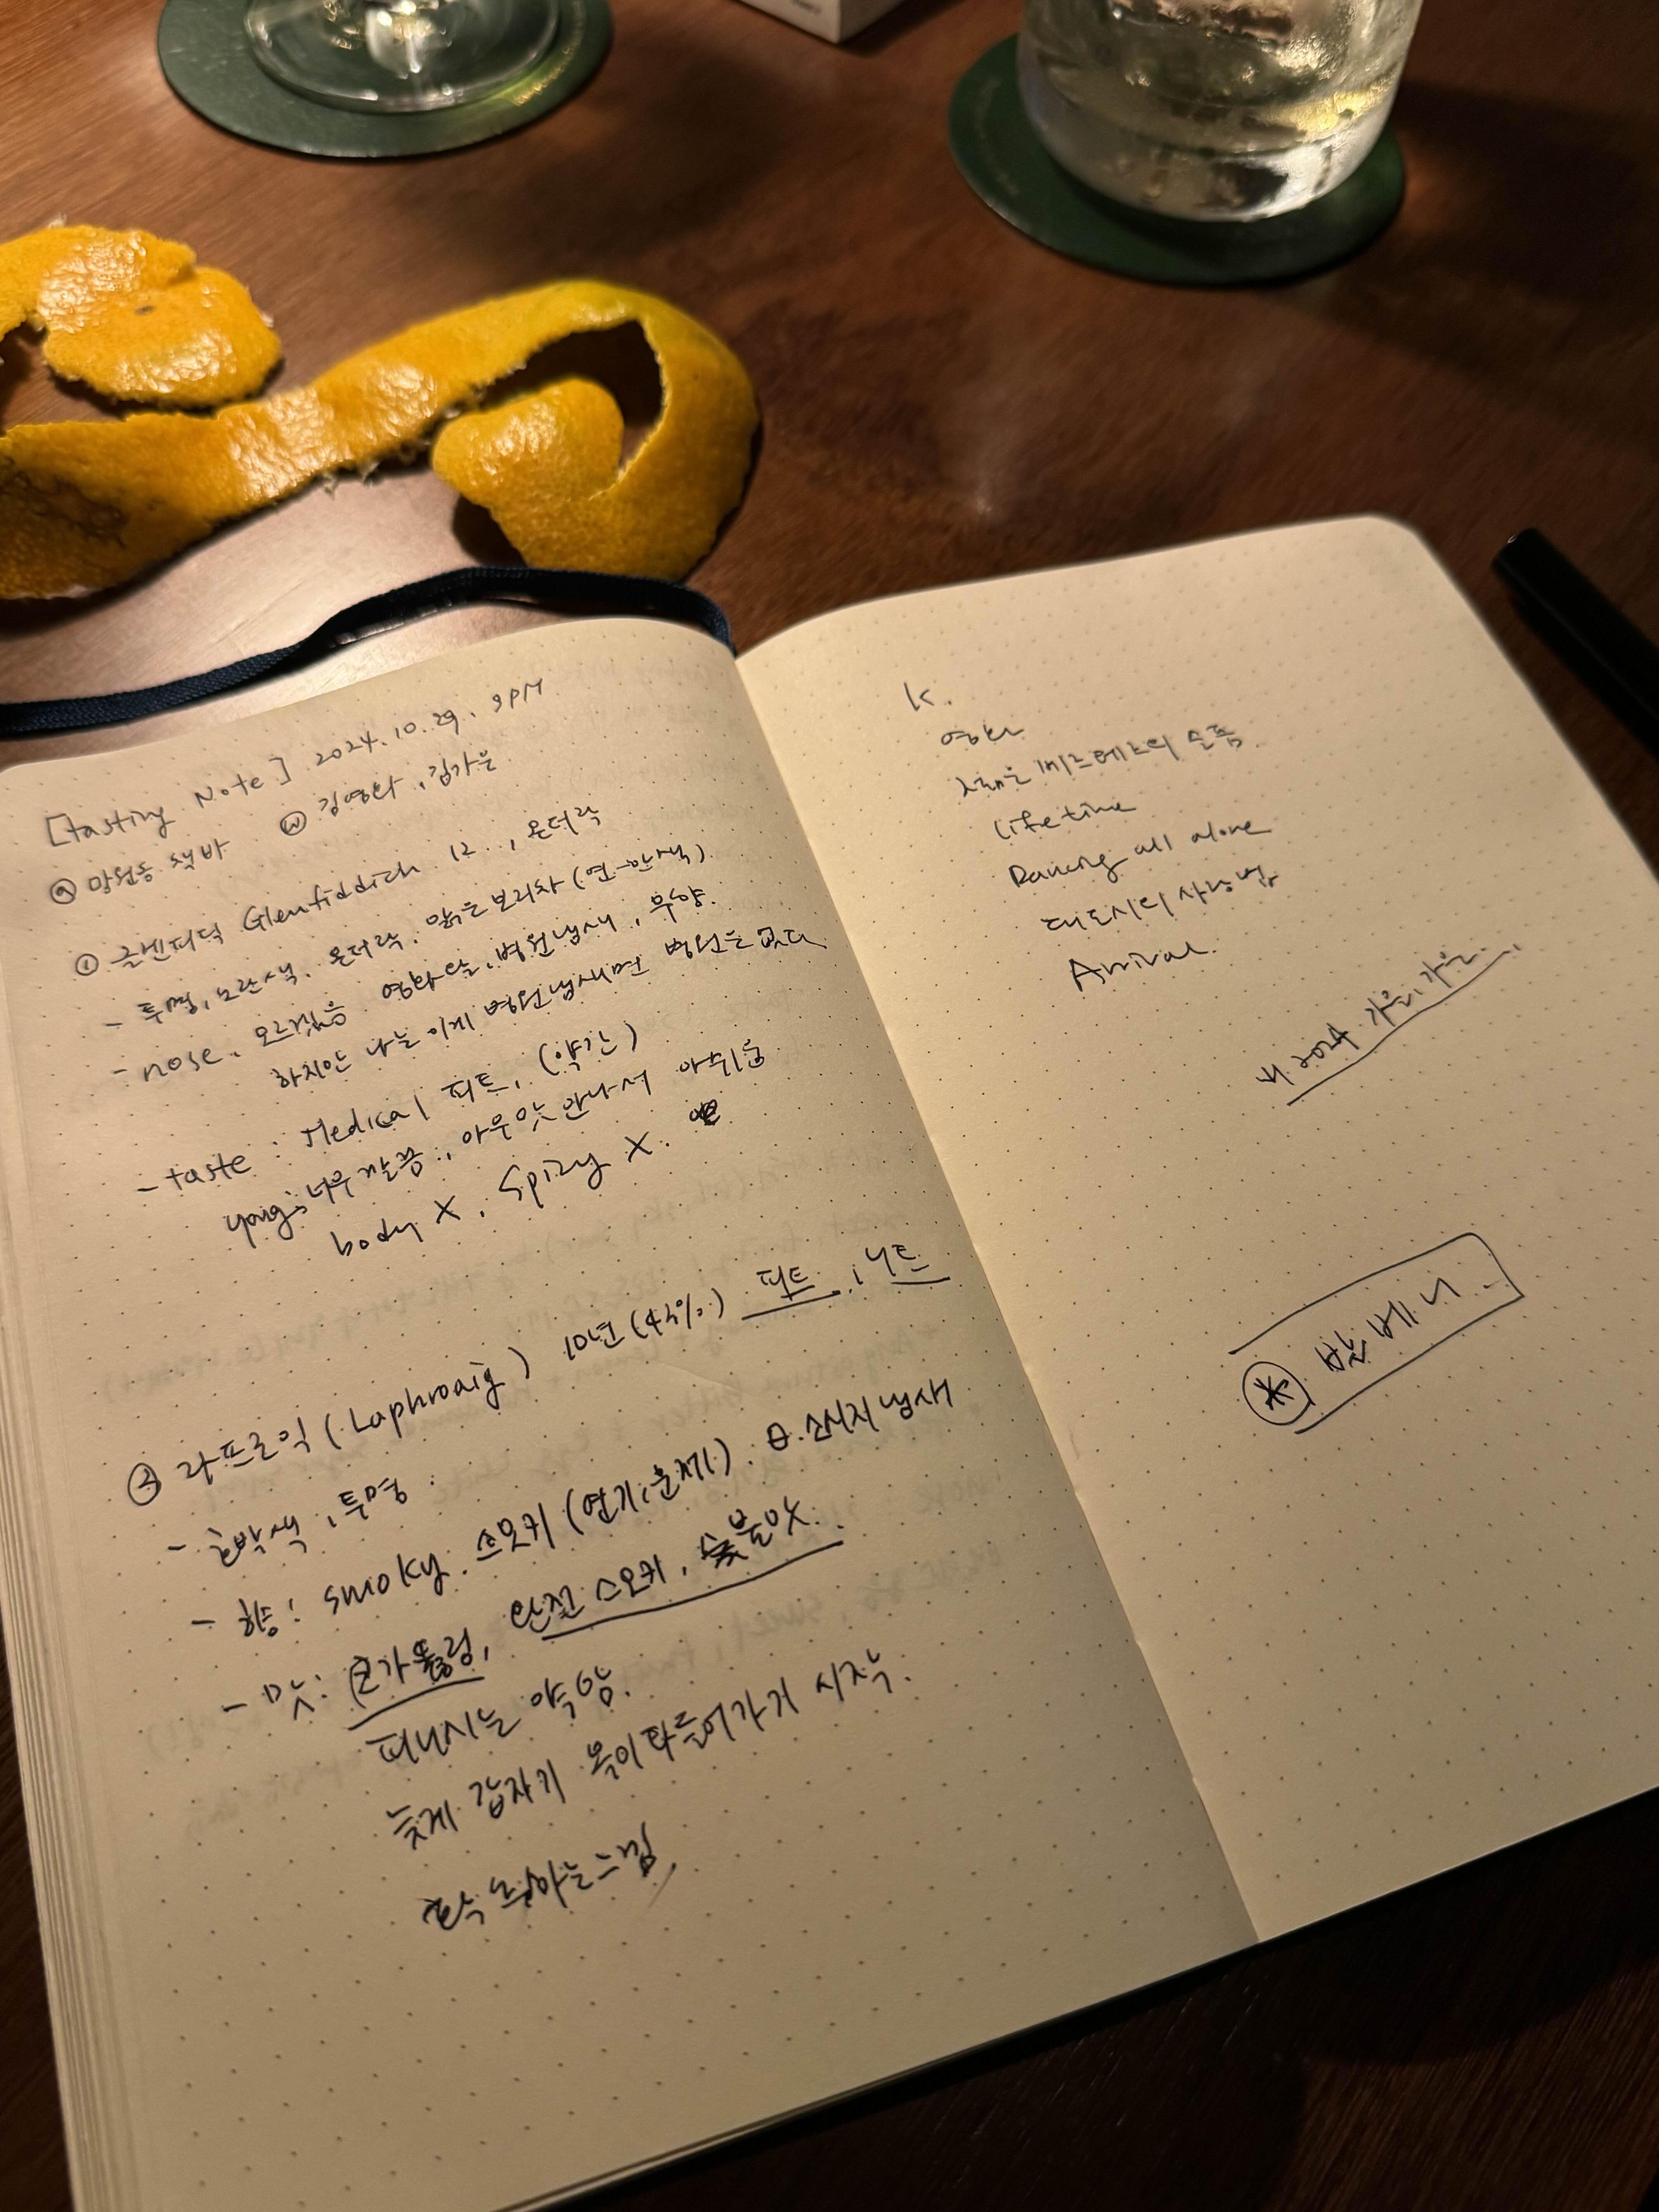 [tasting Note] 2024.10.29. 9PM
@ 망원동 책바 ⓦ 김영화, 김가은
① 글렌피딕 Glenfiddich 12.., 온더락
- 투명, 노란색. 온더락. 맑은보리차 (연-한색)
- nose. 모르겠음 영화왈, 병원냄새,
하지만 나는 이게 병원냄새면 병원은없다.
- taste : Medical 피트, (약간)
yong; 너무깔끔, 아무맛 안나서 아쉬움
body X, Spicy X.
② 라프로익 (Laphroaig) 10년 (43%) 피트, 니트
- 호박색, 투명.
- 향: smoky. 스모키 (연기, 훈제). 소시지 냄새
- 맛: 완전 스모키, 숯불맛.
피니시는 약함.
늦게 갑자기 목이 타들어가기 시작.
훅 하는느낌
K.
영화
새는 페루에서
Lifetime
Dancing all alone
대도시의 사랑법
Arrival.
내 2024 가을가을.
발베니